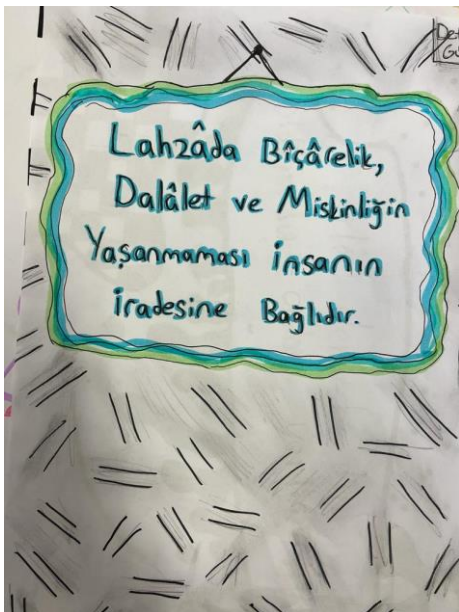 Lahzâda Bîçârelik,
Dalâlet ve Miskinliğin
Yaşanmaması İnsanın
İradesine Bağlıdır.